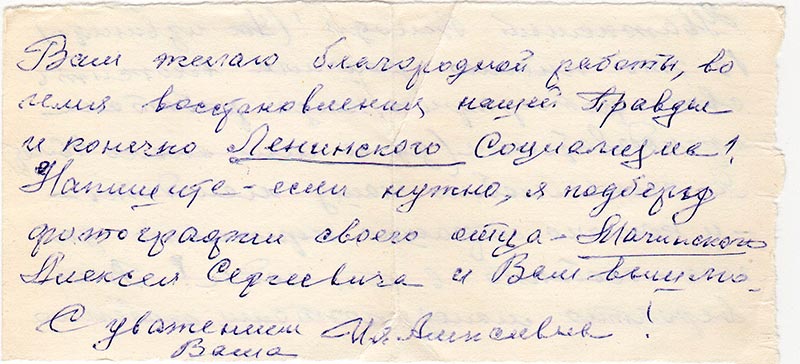 Вам желаю благородной работы, во
имя восстановления нашей Правды
и конечно Ленинского Социализма!
Напишите – если нужно, я подберу
фотографии своего отца – Мачинского
Алексея Сергеевича и Вам вышлю.
С уважением Ия Алексеевна!
Ваша